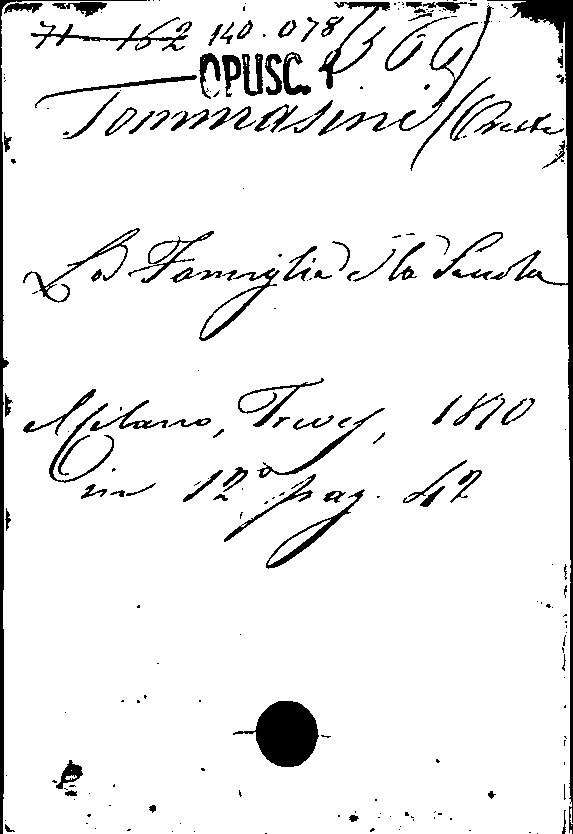 71-162 140.078 (
OPUSC.
Tommasini (Oreste)
La Famiglia e la Scuola
Milano, Treves, 1870
in 12º pag. 42